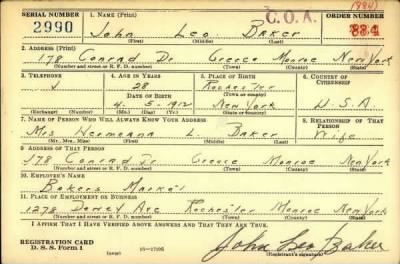 1984)
SERIAL NUMBER 1. NAME (Print) C.O.A. ORDER NUMBER
2990 John Leo Baker 884
(First) (Middle) (Last)
2. ADDRESS (Print)
178 Conrad Dr Greece Monroe New York
(Number and street or R. F. D. number) (Town) (County) (State)
3. TELEPHONE 4. AGE IN YEARS 5. PLACE OF BIRTH 6. COUNTRY OF CITIZENSHIP
28 Rochester
DATE OF BIRTH (Town or county)
4 - 5 - 1912 New York U.S.A
(Exchange) (Number) (Mo.) (Day) (Yr.) (State or country)
7. NAME OF PERSON WHO WILL ALWAYS KNOW YOUR ADDRESS 8. RELATIONSHIP OF THAT PERSON
Mrs Hermeann L. Baker Wife
(Mr. Mrs. Miss) (First) (Middle) (Last)
9. ADDRESS OF THAT PERSON
178 Conrad Dr Greece Monroe New York
(Number and street or R. F. D. number) (Town) (County) (State)
10. EMPLOYER'S NAME
Bakers Market
11. PLACE OF EMPLOYMENT OR BUSINESS
1278 Dewey Ave Rochester Monroe New York
(Number and street or R. F. D. number) (Town) (County) (State)
I AFFIRM THAT I HAVE VERIFIED ABOVE ANSWERS AND THAT THEY ARE TRUE.
REGISTRATION CARD
D. S. S. Form 1 (over) 16—17105 John Leo Baker
(Registrant's signature)